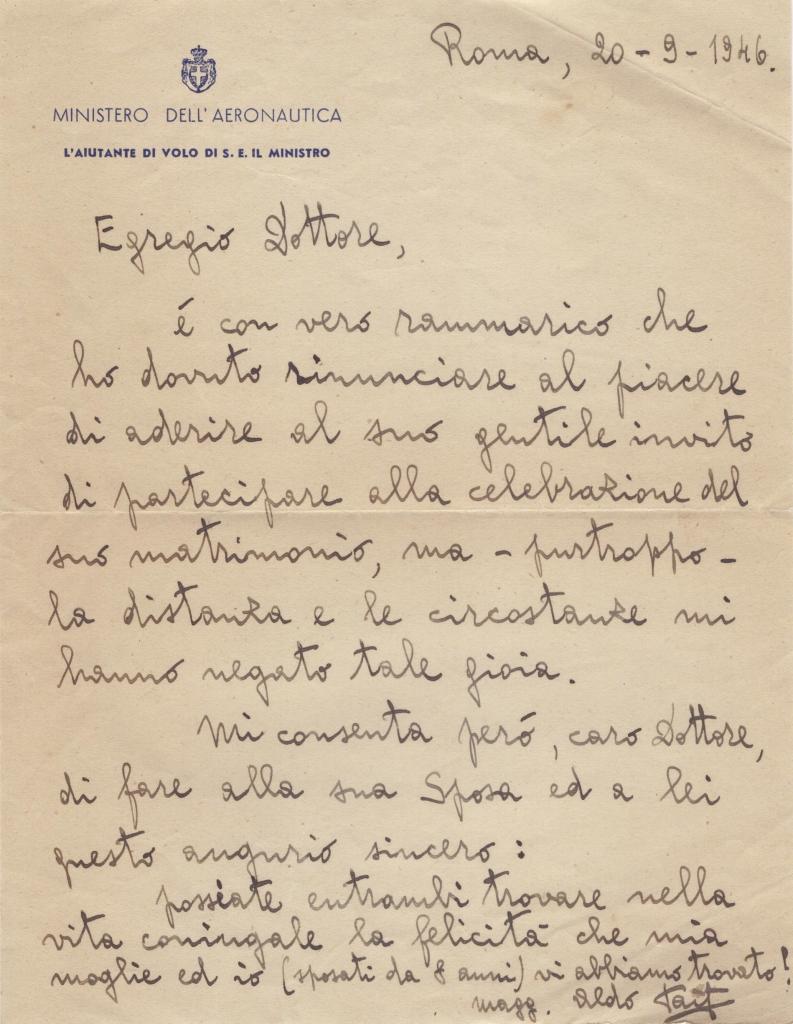 Roma, 20-9-1946.
MINISTERO DELL'AERONAUTICA
L'AIUTANTE DI VOLO DI S. E. IL MINISTRO
Egregio Dottore,
é con vero rammarico che
ho dovuto rinunciare al piacere
di aderire al suo gentile invito
di partecipare alla celebrazione del
suo matrimonio, ma - purtroppo -
la distanza e le circostanze mi
hanno negato tale gioia.
Mi consenta peró, caro Dottore,
di fare alla sua Sposa ed a lei
questo augurio sincero:
possiate entrambi trovare nella
vita coniugale la felicità che mia
moglie ed io (sposati da 8 anni) vi abbiamo trovato!
magg. Aldo Tait